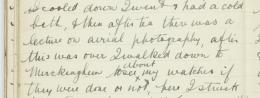 cooled down I went & had a cold
bath, & then after tea there was a
lecture on aerial photography, after
this was over I walked down to
about
my watches if
they were done or not, here I struck